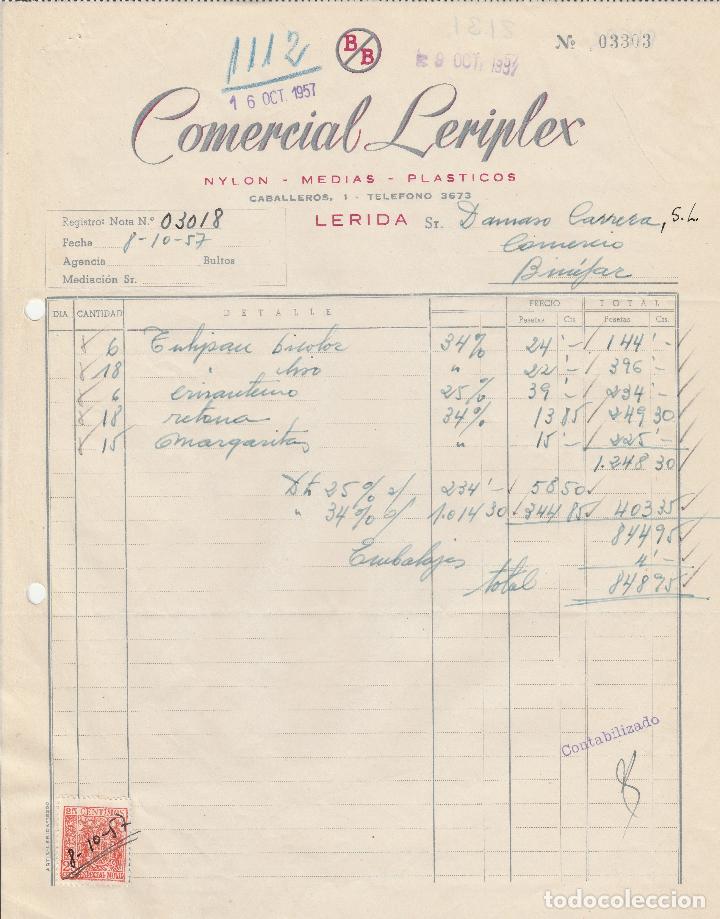 1112
B B
2131
9 OCT. 1957
Nº 03303
16 OCT. 1957
Comercial Leriplex
NYLON - MEDIAS - PLASTICOS
CABALLEROS, 1 - TELEFONO 3673
LERIDA
Registro: Nota N.º 03018
Fecha 8-10-57
Agencia Bultos
Mediación Sr.
Sr. Damaso Carrera, S.L.
Comercio
Binéfar
DIA CANTIDAD DETALLE PRECIO TOTAL
Pesetas Cts. Pesetas Cts.
6 Tulipan bicolor 34% 24'- 144'-
18 " liso " 22'- 396'-
6 crisantemo 25% 39'- 234'-
18 retama 34% 13 85 249 30
15 margaritas " 15'- 225'-
1.248 30
Dt 25% s/ 234'- 58 50
" 34% s/ 1.014 30 344 85 403 35
844 95
Embalajes 4'-
total 848 95
Contabilizado
25 CENTIMOS
ESPECIAL MOVIL
8-10-57
todocoleccion